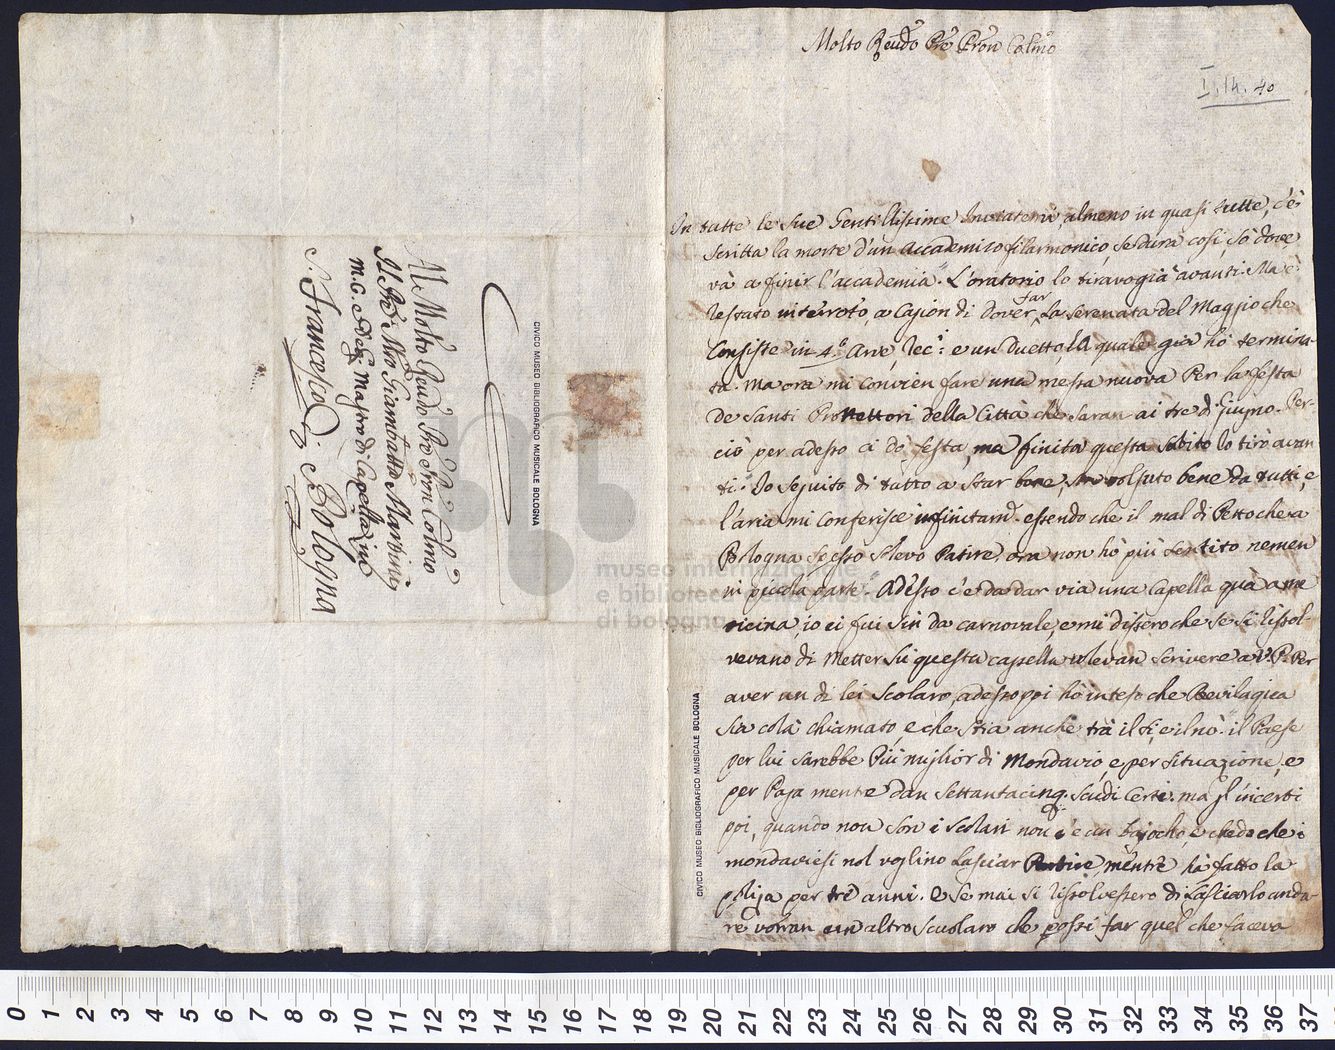 Molto Reudo Pre Pron Colmo
I. 14. 40
In tutte le sue Gentilissime Inviatemi, almeno in quasi tutte, c'è
scritta la morte d'un Accademico filarmonico, se dura così, sò dove
và a finir l'accademia. L'oratorio lo tiravo già avanti. Ma è
restato interroto, a Cajion di dover far La serenata del Maggio che
Consiste in 4º Arie, Recº: e un Duetto la quale già hò termina-
ta. Ma ora mi convien fare una messa nuova Per la festa
de Santi Protettori della Città che saran ai tre di Giugno. Per-
ciò per adesso ci dò festa, ma finita questa subito lo tirò avan-
ti. Io seguito di tutto a star bene, ben volsuto bene da tutti, e
l'aria mi Conferisce infinitam. essendo che il mal di Petto che a
Bologna spesso solevo Patire, ora non hò più sentito nemen
in picola parte. Adesso c'è da dar via una Capella quà a me
vicina, io ci fui sin da carnovale, e mi dissero che se si risol-
vevano di Metter sù questa cappella volevan scrivere a V.P. Per
aver un di lei Scolaro, adesso poi hò inteso che Bevilaqua
sia colà chiamato, e che stia anche trà il sì, e il nò. il Paese
per lui sarebbe Più miglior di Mondavio, e per situazione, e
per Paga mentre dan settantacinq. scudi Certi. ma gl'incerti
poi, quando non son i scolari non c'è un bajocho, e chedo che i
mondaviesi nol voglino Lasciar Partire, mentre hà fatto la
plija per trè anni. e se mai si risolvessero di Lasciarlo anda-
re vorran un altro scuolaro che possi far quel che faceva
Al Molto Reudo Pre Pron Colmo
Il Pre Mro Giambatta Martini
m.C. Mastro di Capella in
S. Francesco di Bologna
CIVICO MUSEO BIBLIOGRAFICO MUSICALE BOLOGNA
CIVICO MUSEO BIBLIOGRAFICO MUSICALE BOLOGNA
museo internazionale
e biblioteca della musica
di bologna
0 1 2 3 4 5 6 7 8 9 10 11 12 13 14 15 16 17 18 19 20 21 22 23 24 25 26 27 28 29 30 31 32 33 34 35 36 37